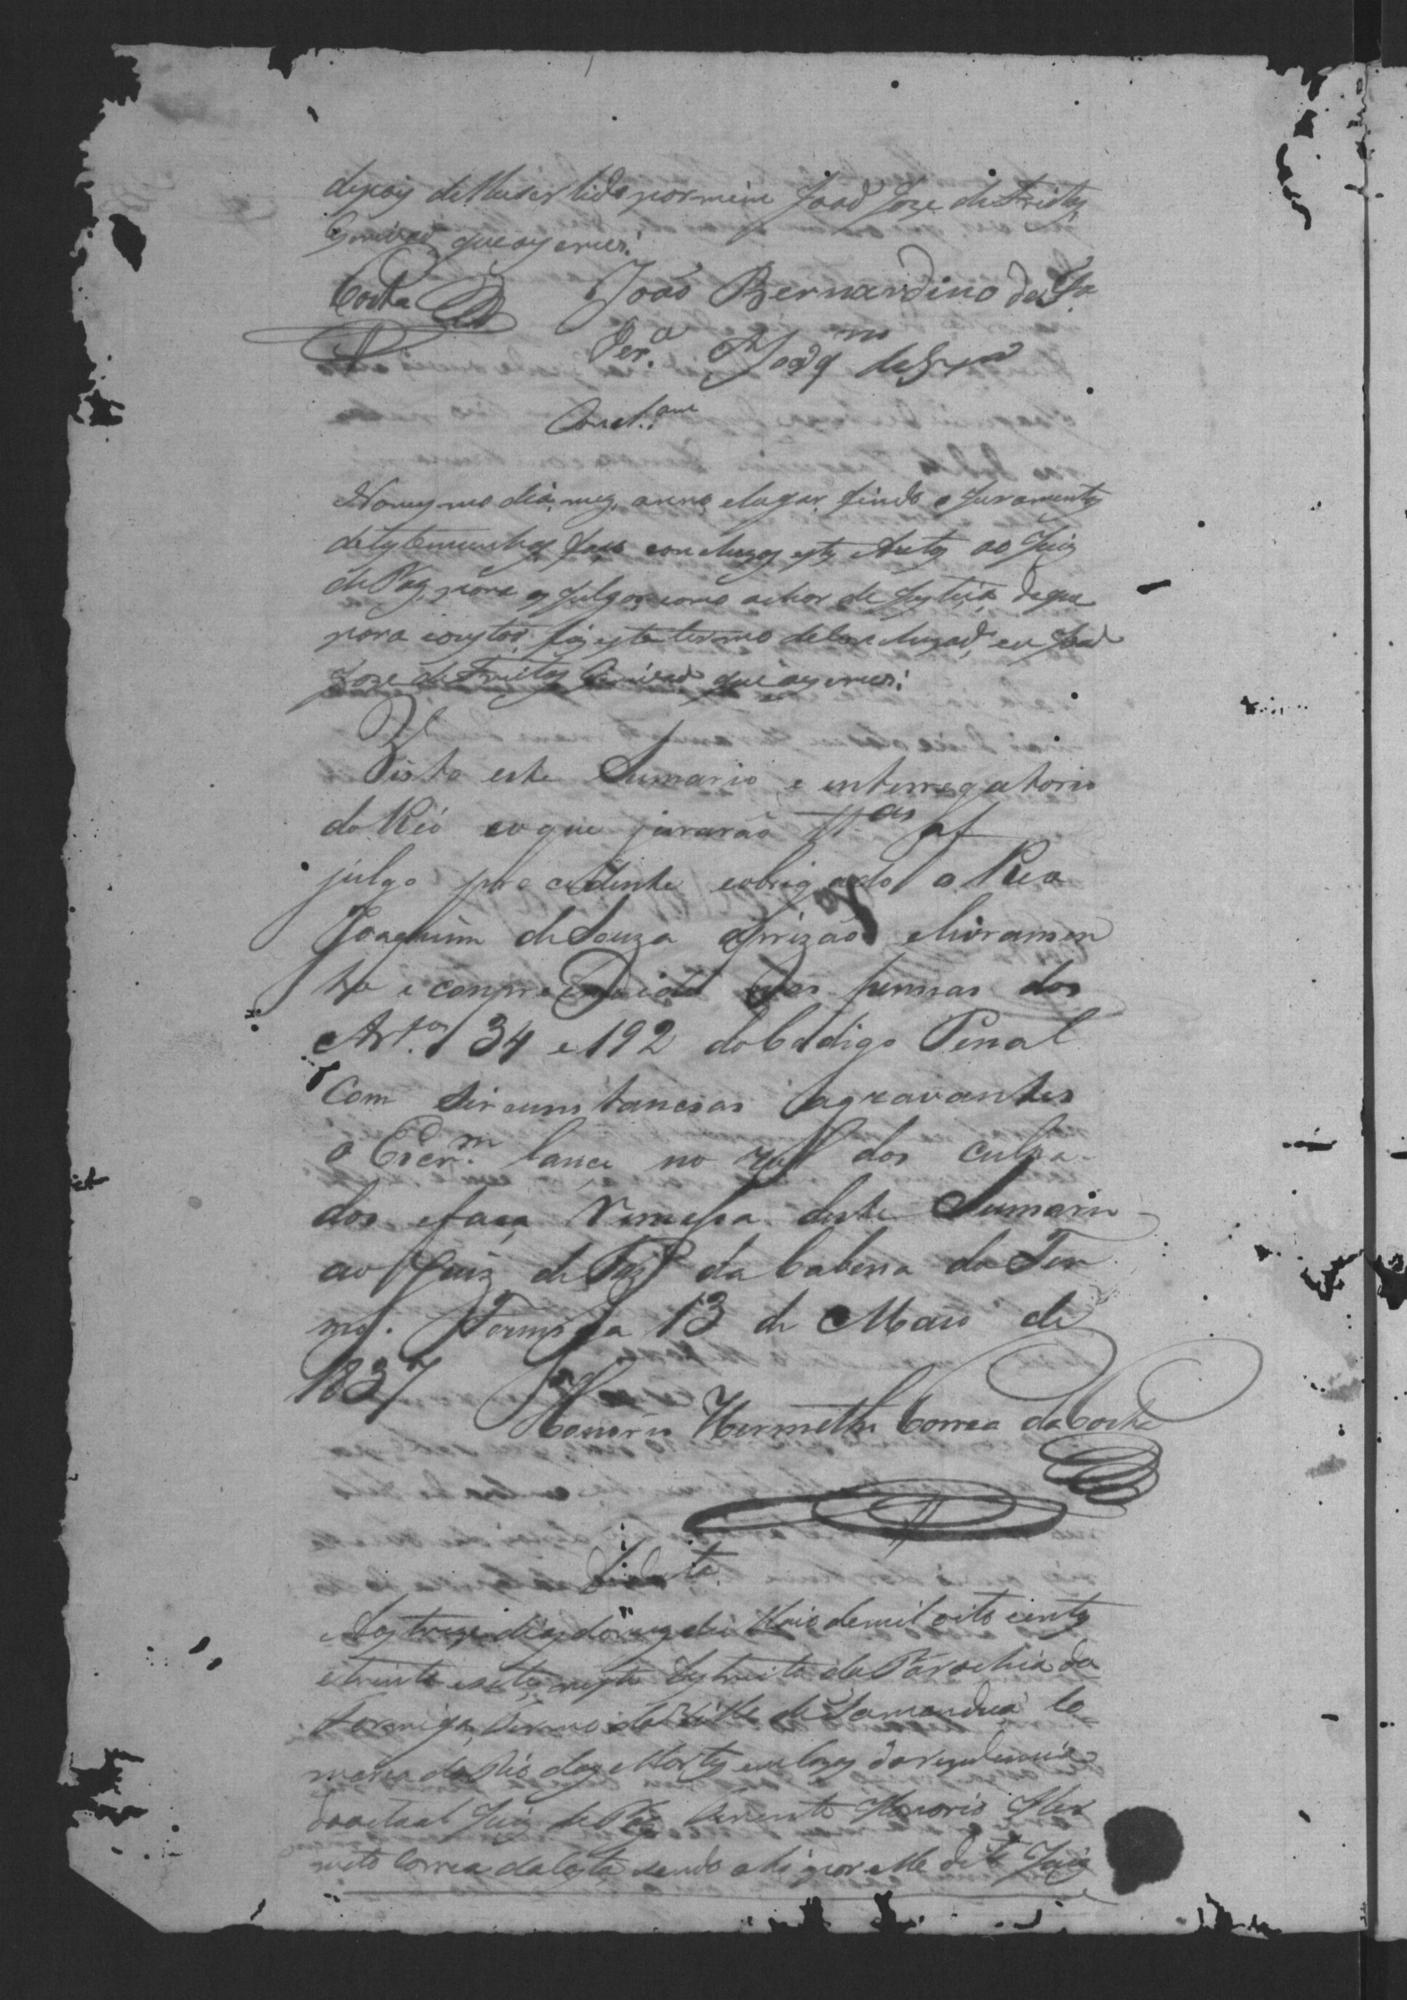 depois de lhe ser lido por mim João Joze de Freitas
Escrivão que o escrevi
Costa João Bernardino da Sa
Per.ª Joaq.m de Sza
Concl.am
No mesmo dia, mez, anno, e lugar, findo o juramento
de testemunhas faço conclusos estes Autos ao Juiz
de Paz para os julgar como achar de Justiça, de que
para constar, fiz este termo de Concluzão, eu João
Joze de Freitas Escrivão que o escrevi
Visto este Sumario, e interrogatorio
do Reo eoque jurarão tt.as af
julgo procedente eobrigado o Reo
Joaquim de Souza a prizão elivramen
to e conpreendido nas pennas dos
Art.os 34 e 192 do Codigo Penal
Com sircunstancias agravantes
o Escr.m lance no rol dos culpa-
dos efaça remessa deste Sumario
ao Juiz de Paz da Cabeça do Ter
mo. Formiga 13 de Maio de
1837
Honorio Hermetto Correa da Costa
Data
Aos treze dias do mez de Maio de mil oito centos
e trinta e sete, neste Destricto da Parochia da
Formiga, Termo da Villa de Tamanduá Co-
marca do Rio das Mortes em Cazas da rezidencia
do actual Juiz de Paz Tenente Honorio Her
meto Correa da Costa sendo ahi por elle dito Juiz